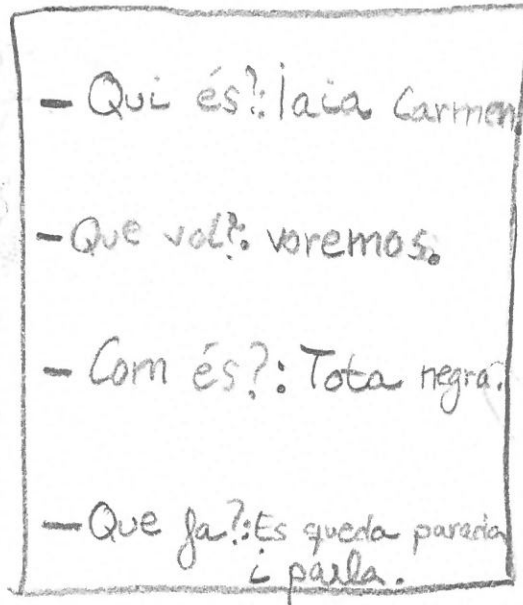 - Qui és?: Iaia Carmen
- Que vol?: voremos.
- Com és?: Tota negra.
- Que fa?: Es queda parada
i parla.